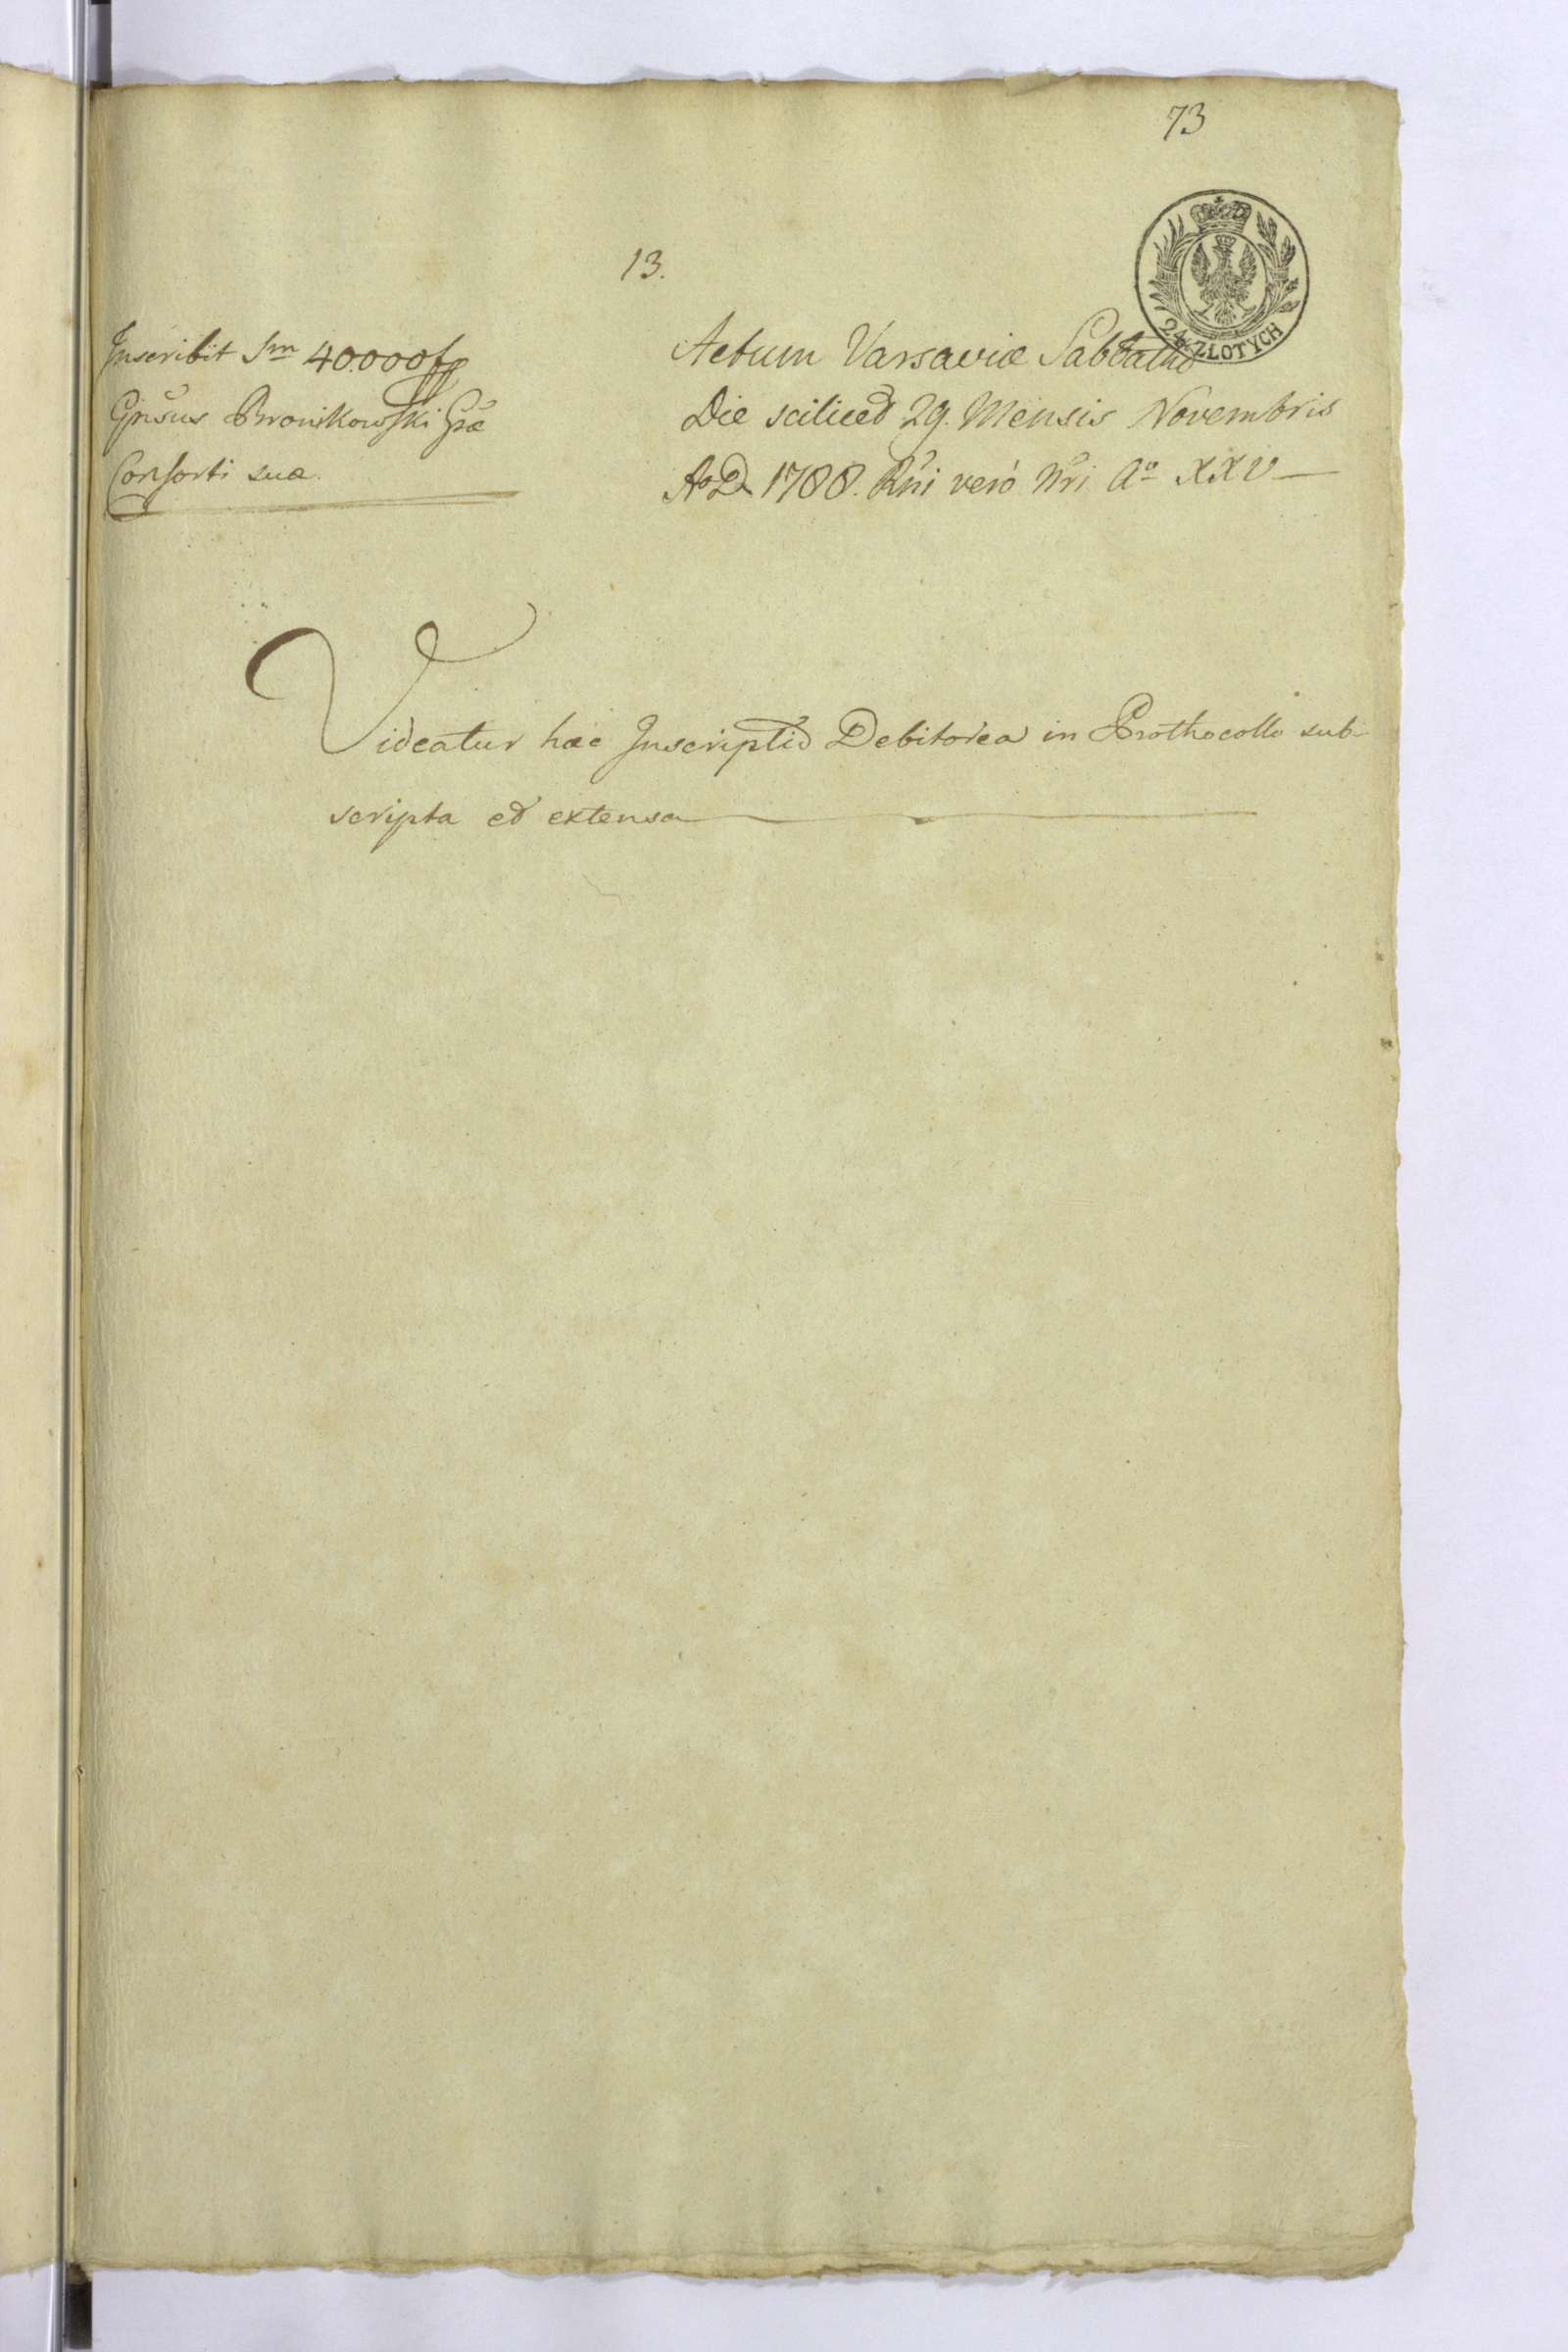 73
13.
24. ZŁOTYCH
Inscribit Sm̄ 40.000 fp
Gn̄sus Bronikowski Gsæ
Consorti suæ.
Actum Varsaviæ Sabbatho
Die scilicet 29. Mensis Novembris
Ao D. 1788. Rn̄i verò Nr̄i Aº XXV
Videatur hæc Inscriptio Debitorea in Prothocollo sub-
scripta et extensa